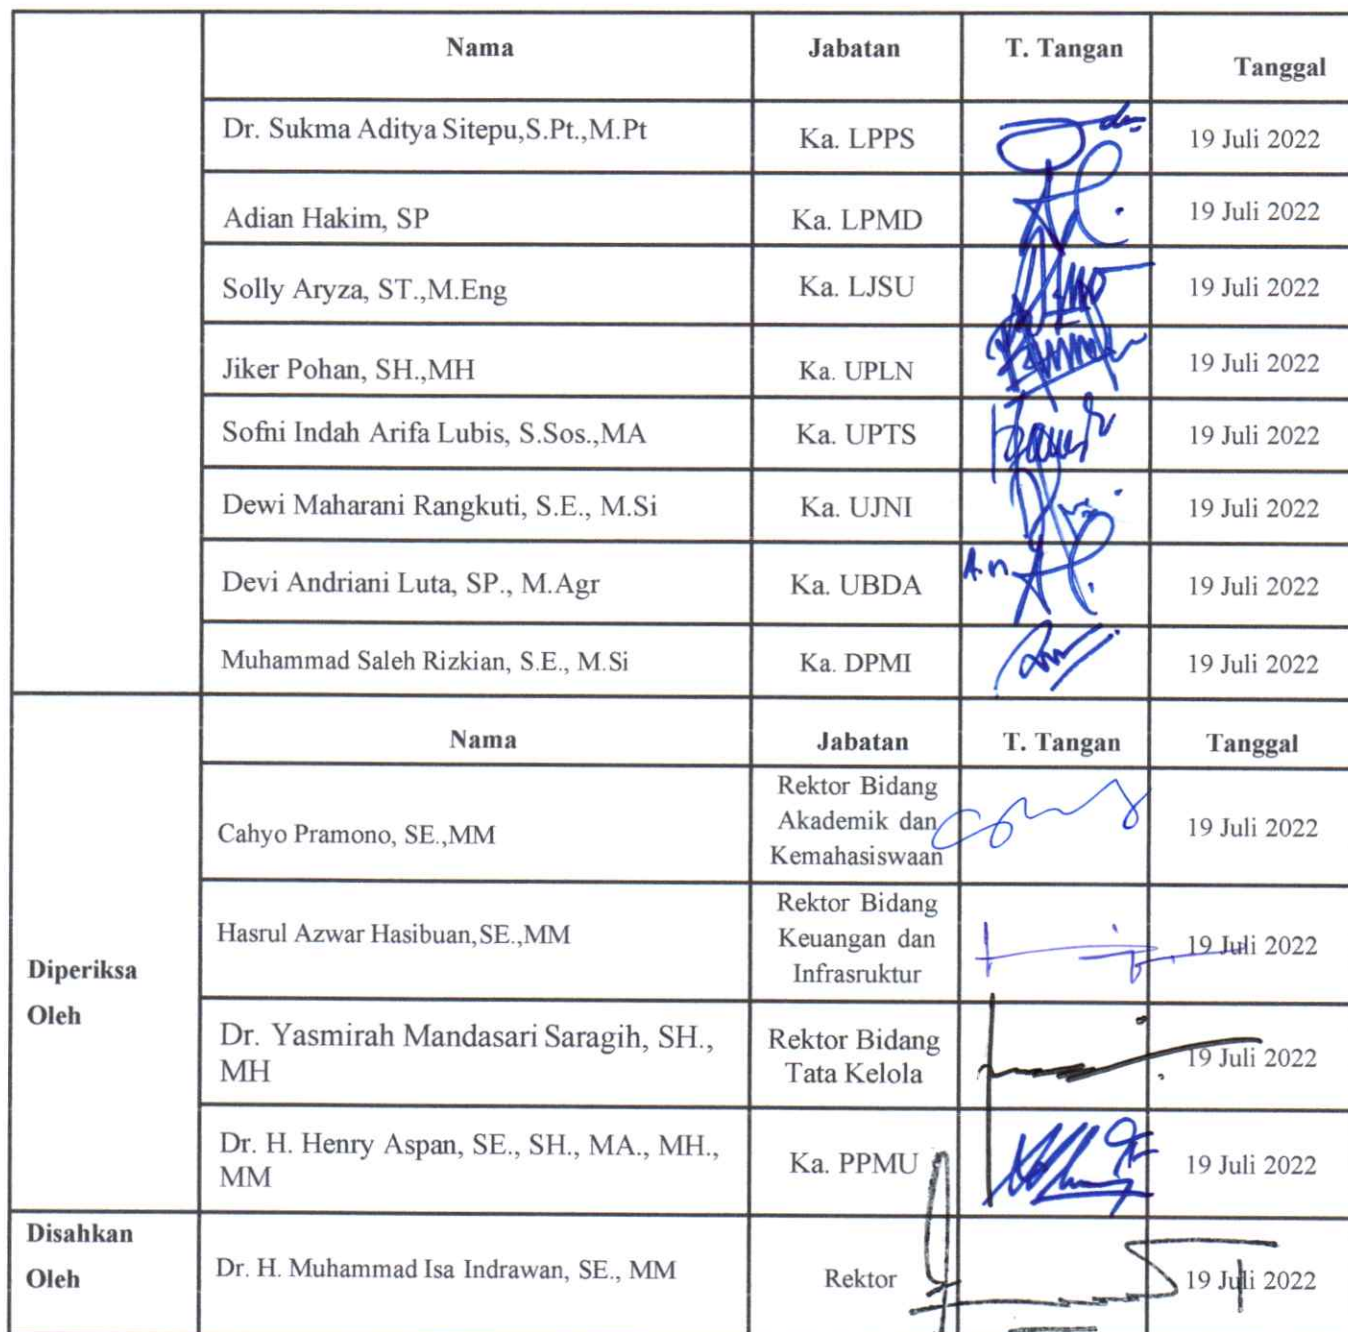 Nama Jabatan T. Tangan Tanggal
Dr. Sukma Aditya Sitepu,S.Pt.,M.Pt Ka. LPPS 19 Juli 2022
Adian Hakim, SP Ka. LPMD 19 Juli 2022
Solly Aryza, ST.,M.Eng Ka. LJSU 19 Juli 2022
Jiker Pohan, SH.,MH Ka. UPLN 19 Juli 2022
Sofni Indah Arifa Lubis, S.Sos.,MA Ka. UPTS 19 Juli 2022
Dewi Maharani Rangkuti, S.E., M.Si Ka. UJNI 19 Juli 2022
Devi Andriani Luta, SP., M.Agr Ka. UBDA A.n. 19 Juli 2022
Muhammad Saleh Rizkian, S.E., M.Si Ka. DPMI 19 Juli 2022
Diperiksa
Oleh
Nama Jabatan T. Tangan Tanggal
Cahyo Pramono, SE.,MM
Rektor Bidang
Akademik dan
Kemahasiswaan
19 Juli 2022
Hasrul Azwar Hasibuan,SE.,MM
Rektor Bidang
Keuangan dan
Infrasruktur
19 Juli 2022
Dr. Yasmirah Mandasari Saragih, SH.,
MH
Rektor Bidang
Tata Kelola
19 Juli 2022
Dr. H. Henry Aspan, SE., SH., MA., MH.,
MM
Ka. PPMU
19 Juli 2022
Disahkan
Oleh
Dr. H. Muhammad Isa Indrawan, SE., MM Rektor 19 Juli 2022